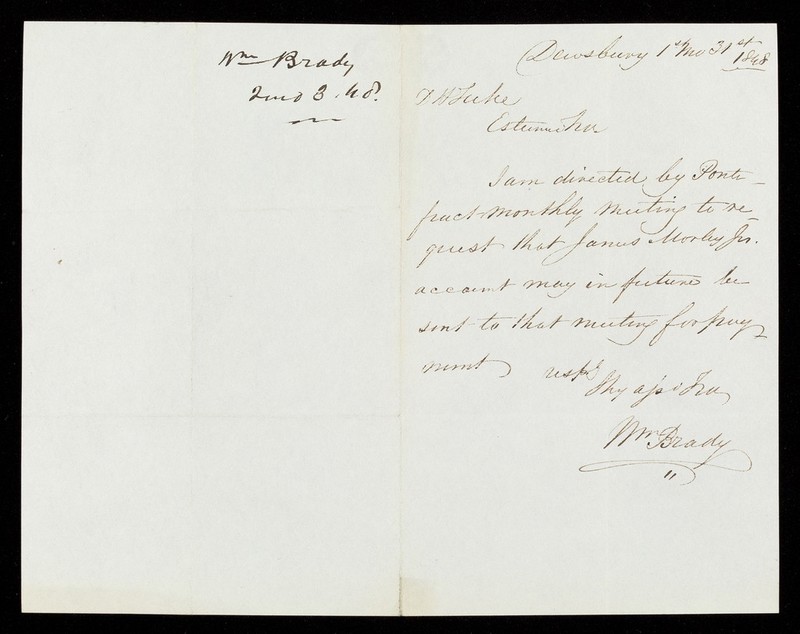 Wm Brady
2mo 3. 48.
Dewsbury 1st Mo 31st 1848
Tuke
Esteemd
I am directed by Ponte-
fract monthly meeting to re-
quest that James Morley Jr.
account may in future be
sent to that meeting for pay-
ment
respg
Thy assd
Wm Brady